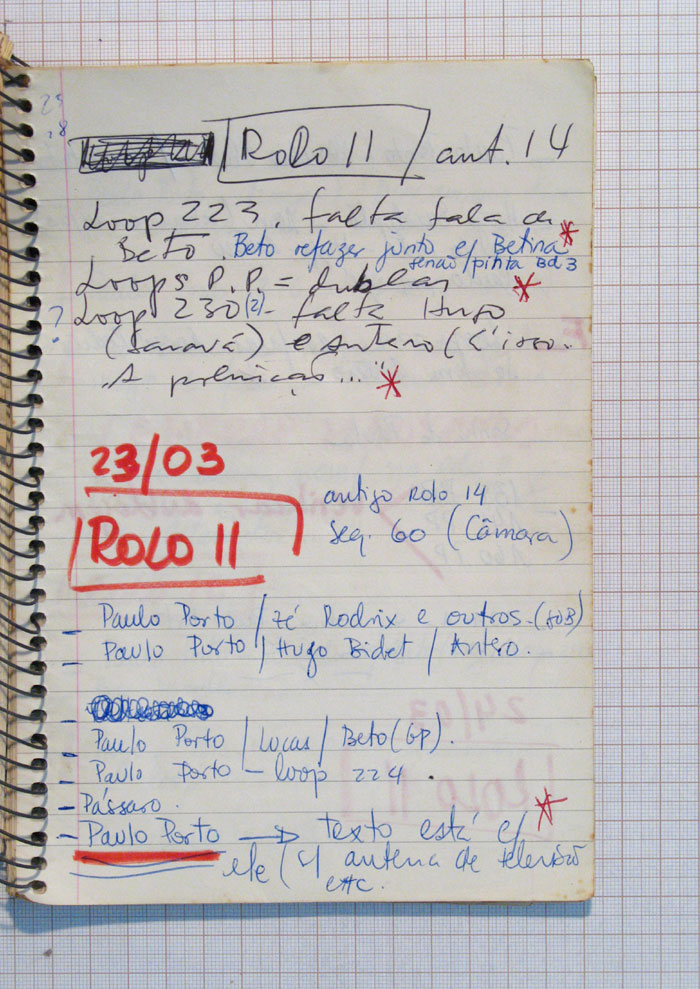 Rolo 11 ant. 14
Loop 223. falta fala de
Beto. Beto refazer junto c/ Betina
senão/pinta BD 3
Loops P.P. = dublar
? Loop 230(2) - falta Hugo
(Saravá) e Antero (
A poluição..."
23/03
ROLO 11
antigo Rolo 14
seq. 60 (Câmara)
- Paulo Porto / Zé Rodrix e outros-(
- Paulo Porto / Hugo Bidet / Antero.
- Paulo Porto / Lucas / Beto (GP).
- Paulo Porto - loop 224.
- Pássaro.
- Paulo Porto → texto está c/
ele (c/ antena de televisão
etc.